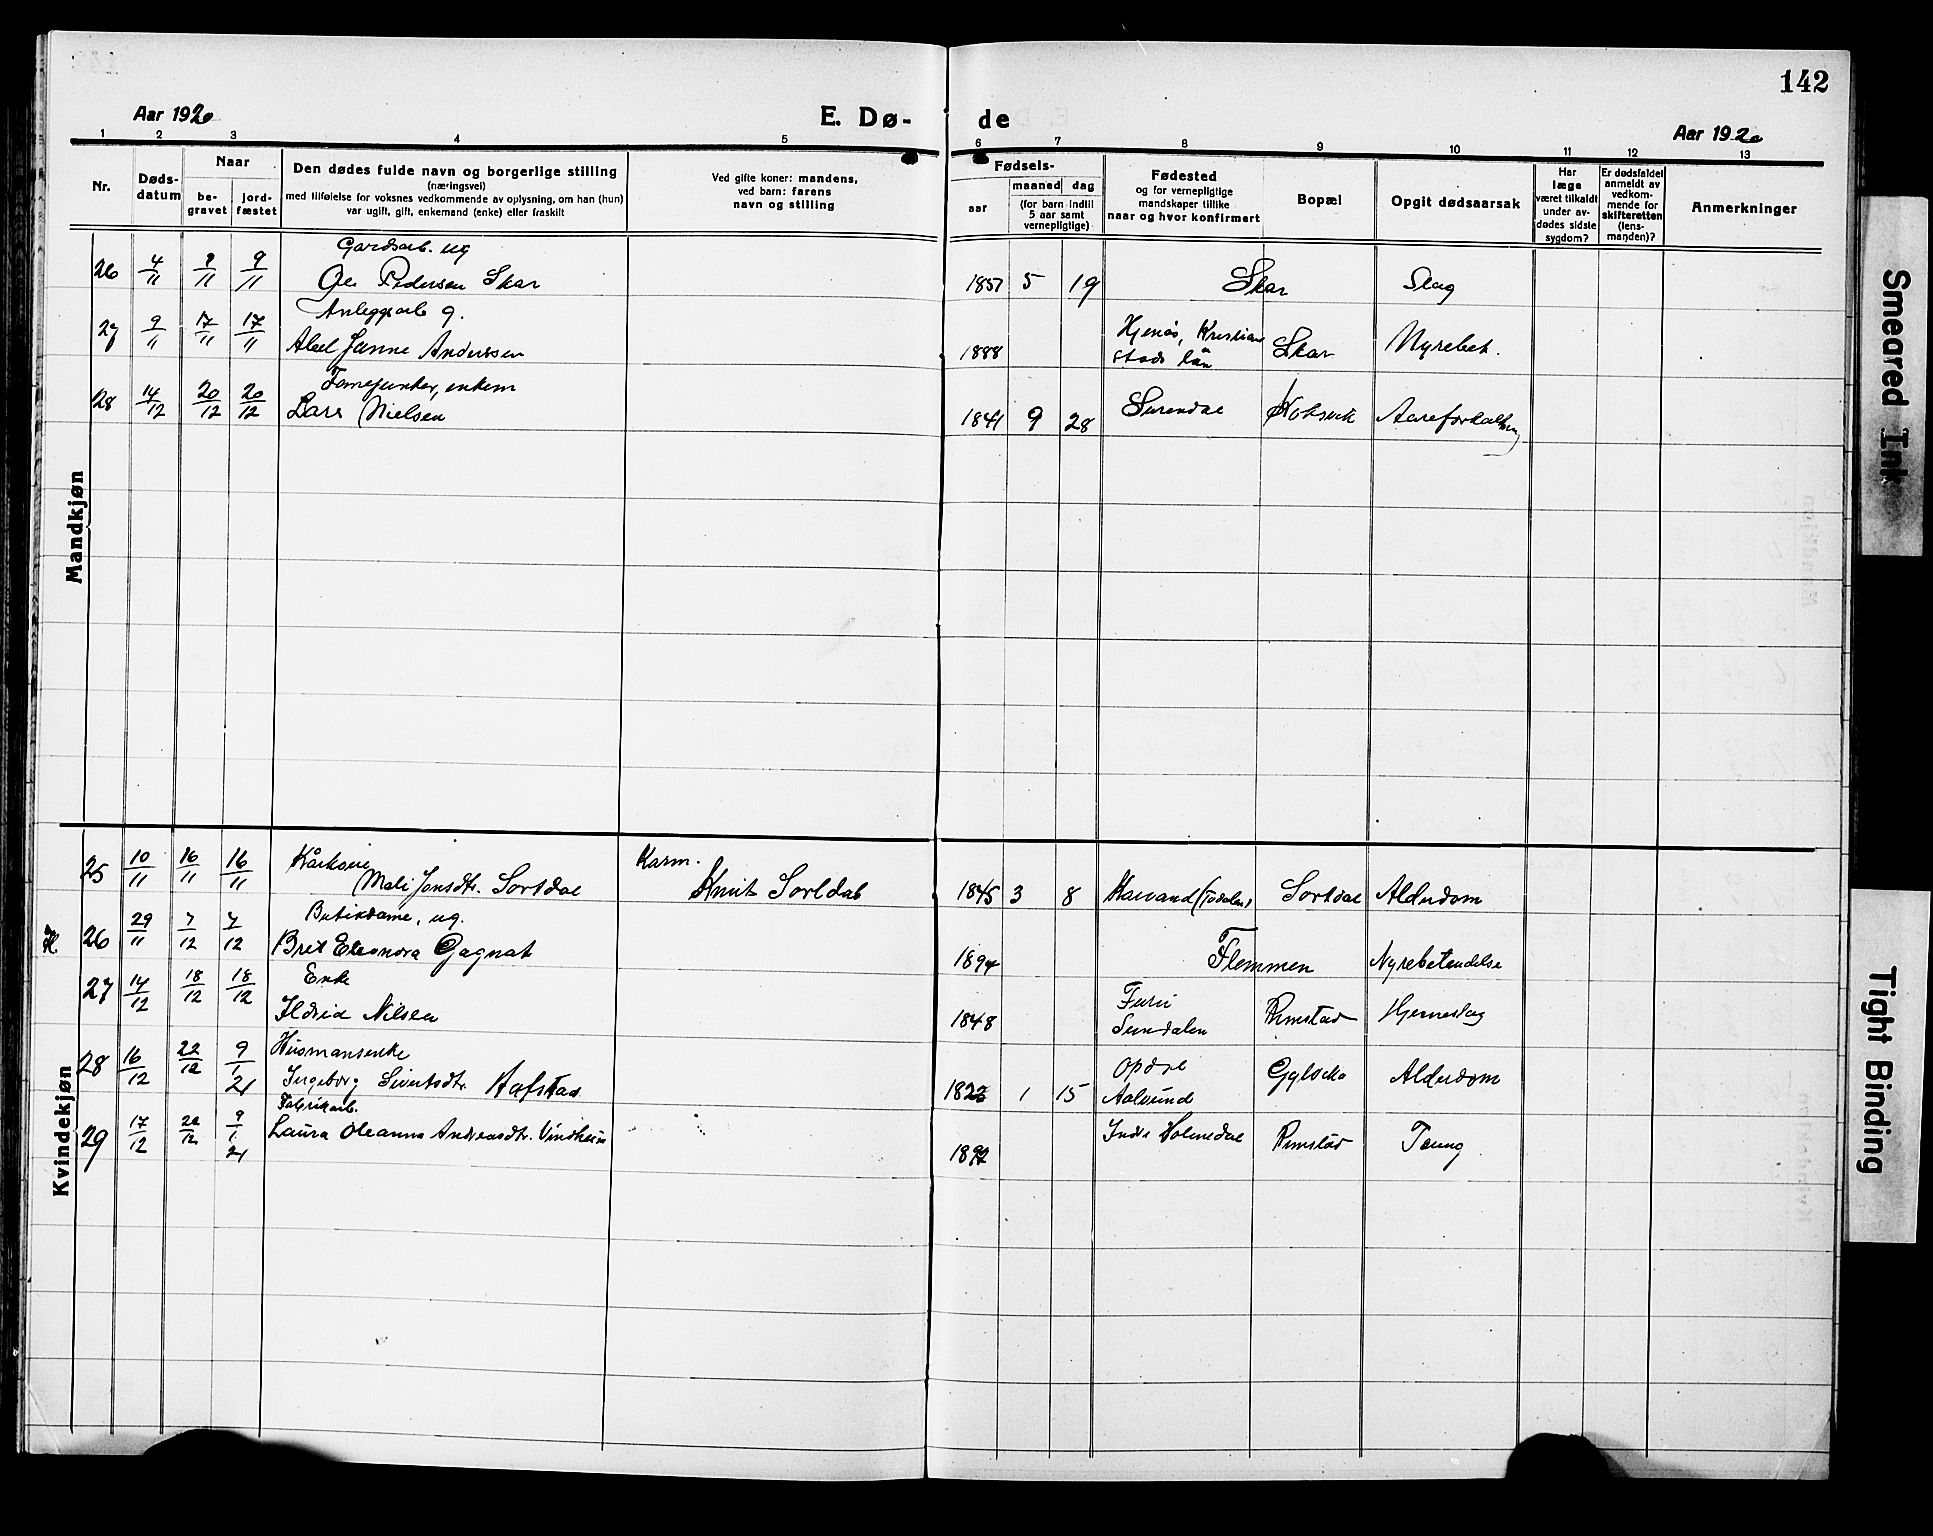 142
Aar 1920
E. Dø-
de
Aar 1920
1 2 3 4 5 6 7 8 9 10 11 12 13
Nr.
Døds-
datum
Naar
be-
gravet
jord-
fæstet
Den dødes fulde navn og borgerlige stilling
(næringsvei)
med tilføielse for voksnes vedkommende av oplysning, om han (hun)
var ugift, gift, enkemand (enke) eller fraskilt
Ved gifte koner: mandens,
ved barn: farens
navn og stilling
Fødsels-
aar
maaned dag
(for barn indtil
5 aar samt
vernepligtige)
Fødested
og for vernepligtige
mandskaper tillike
naar og hvor konfirmert
Bopæl
Opgit dødsaarsak
Har
læge
været tilkaldt
under av-
dødes sidste
sygdom?
Er dødsfaldet
anmeldt av
vedkom-
mende for
skifteretten
(lens-
manden)?
Anmerkninger
Mandkjøn
Gardsarb. ug
26 4/11 9/11 9/11 Ole Pedersen Skar 1857 5 19 Skar Slag
Anleggsarb g.
27 9/11 17/11 17/11 Abel Janne Anderssen 1888 Hjenäs, Kristian
stads län Skar Nyrebet.
28 14/12 20/12 20/12 Lars Nielsen 1841 9 28 Surendal Aareforkalkning
Kvindekjøn
25 10/11 16/11 16/11 Kårkone Karm.
Mali Jonsdtr. Sortdal Knut Sortdal 1845 3 8 (Todalen) Sortdal Alderdom
Butikdame, ug.
26 29/11 7/12 7/12 Brit Eleonora Gagnat 1894 Flemmen Nyrebetendelse
27 14/12 18/12 18/12 Enke
Ildrid Nilsen 1848 Furu
Sundalen Hjerneslag
28 16/12 22/12 9/1 21 Husmansenke
Ingeborg Sivertsdtr. Hafstad 1 15 Opdøl
Aalvund Alderdom
Fabrikarb.
29 17/12 22/12 9/1 21 Laura Oleanna Andreasdtr. Vindheim Indre Holmedal Taung